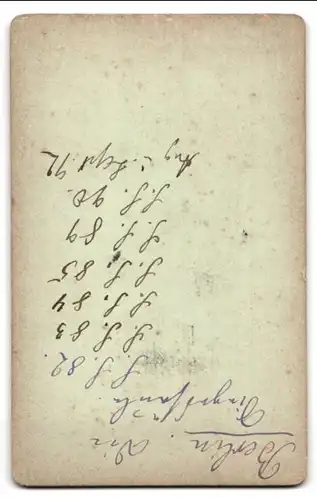 Berlin. Die
Siegessäule
S. S. 82.
S. S. 83
S. S. 84
S. S. 85
S. S. 89
S. S. 90.
Aug. u. Sept. 92